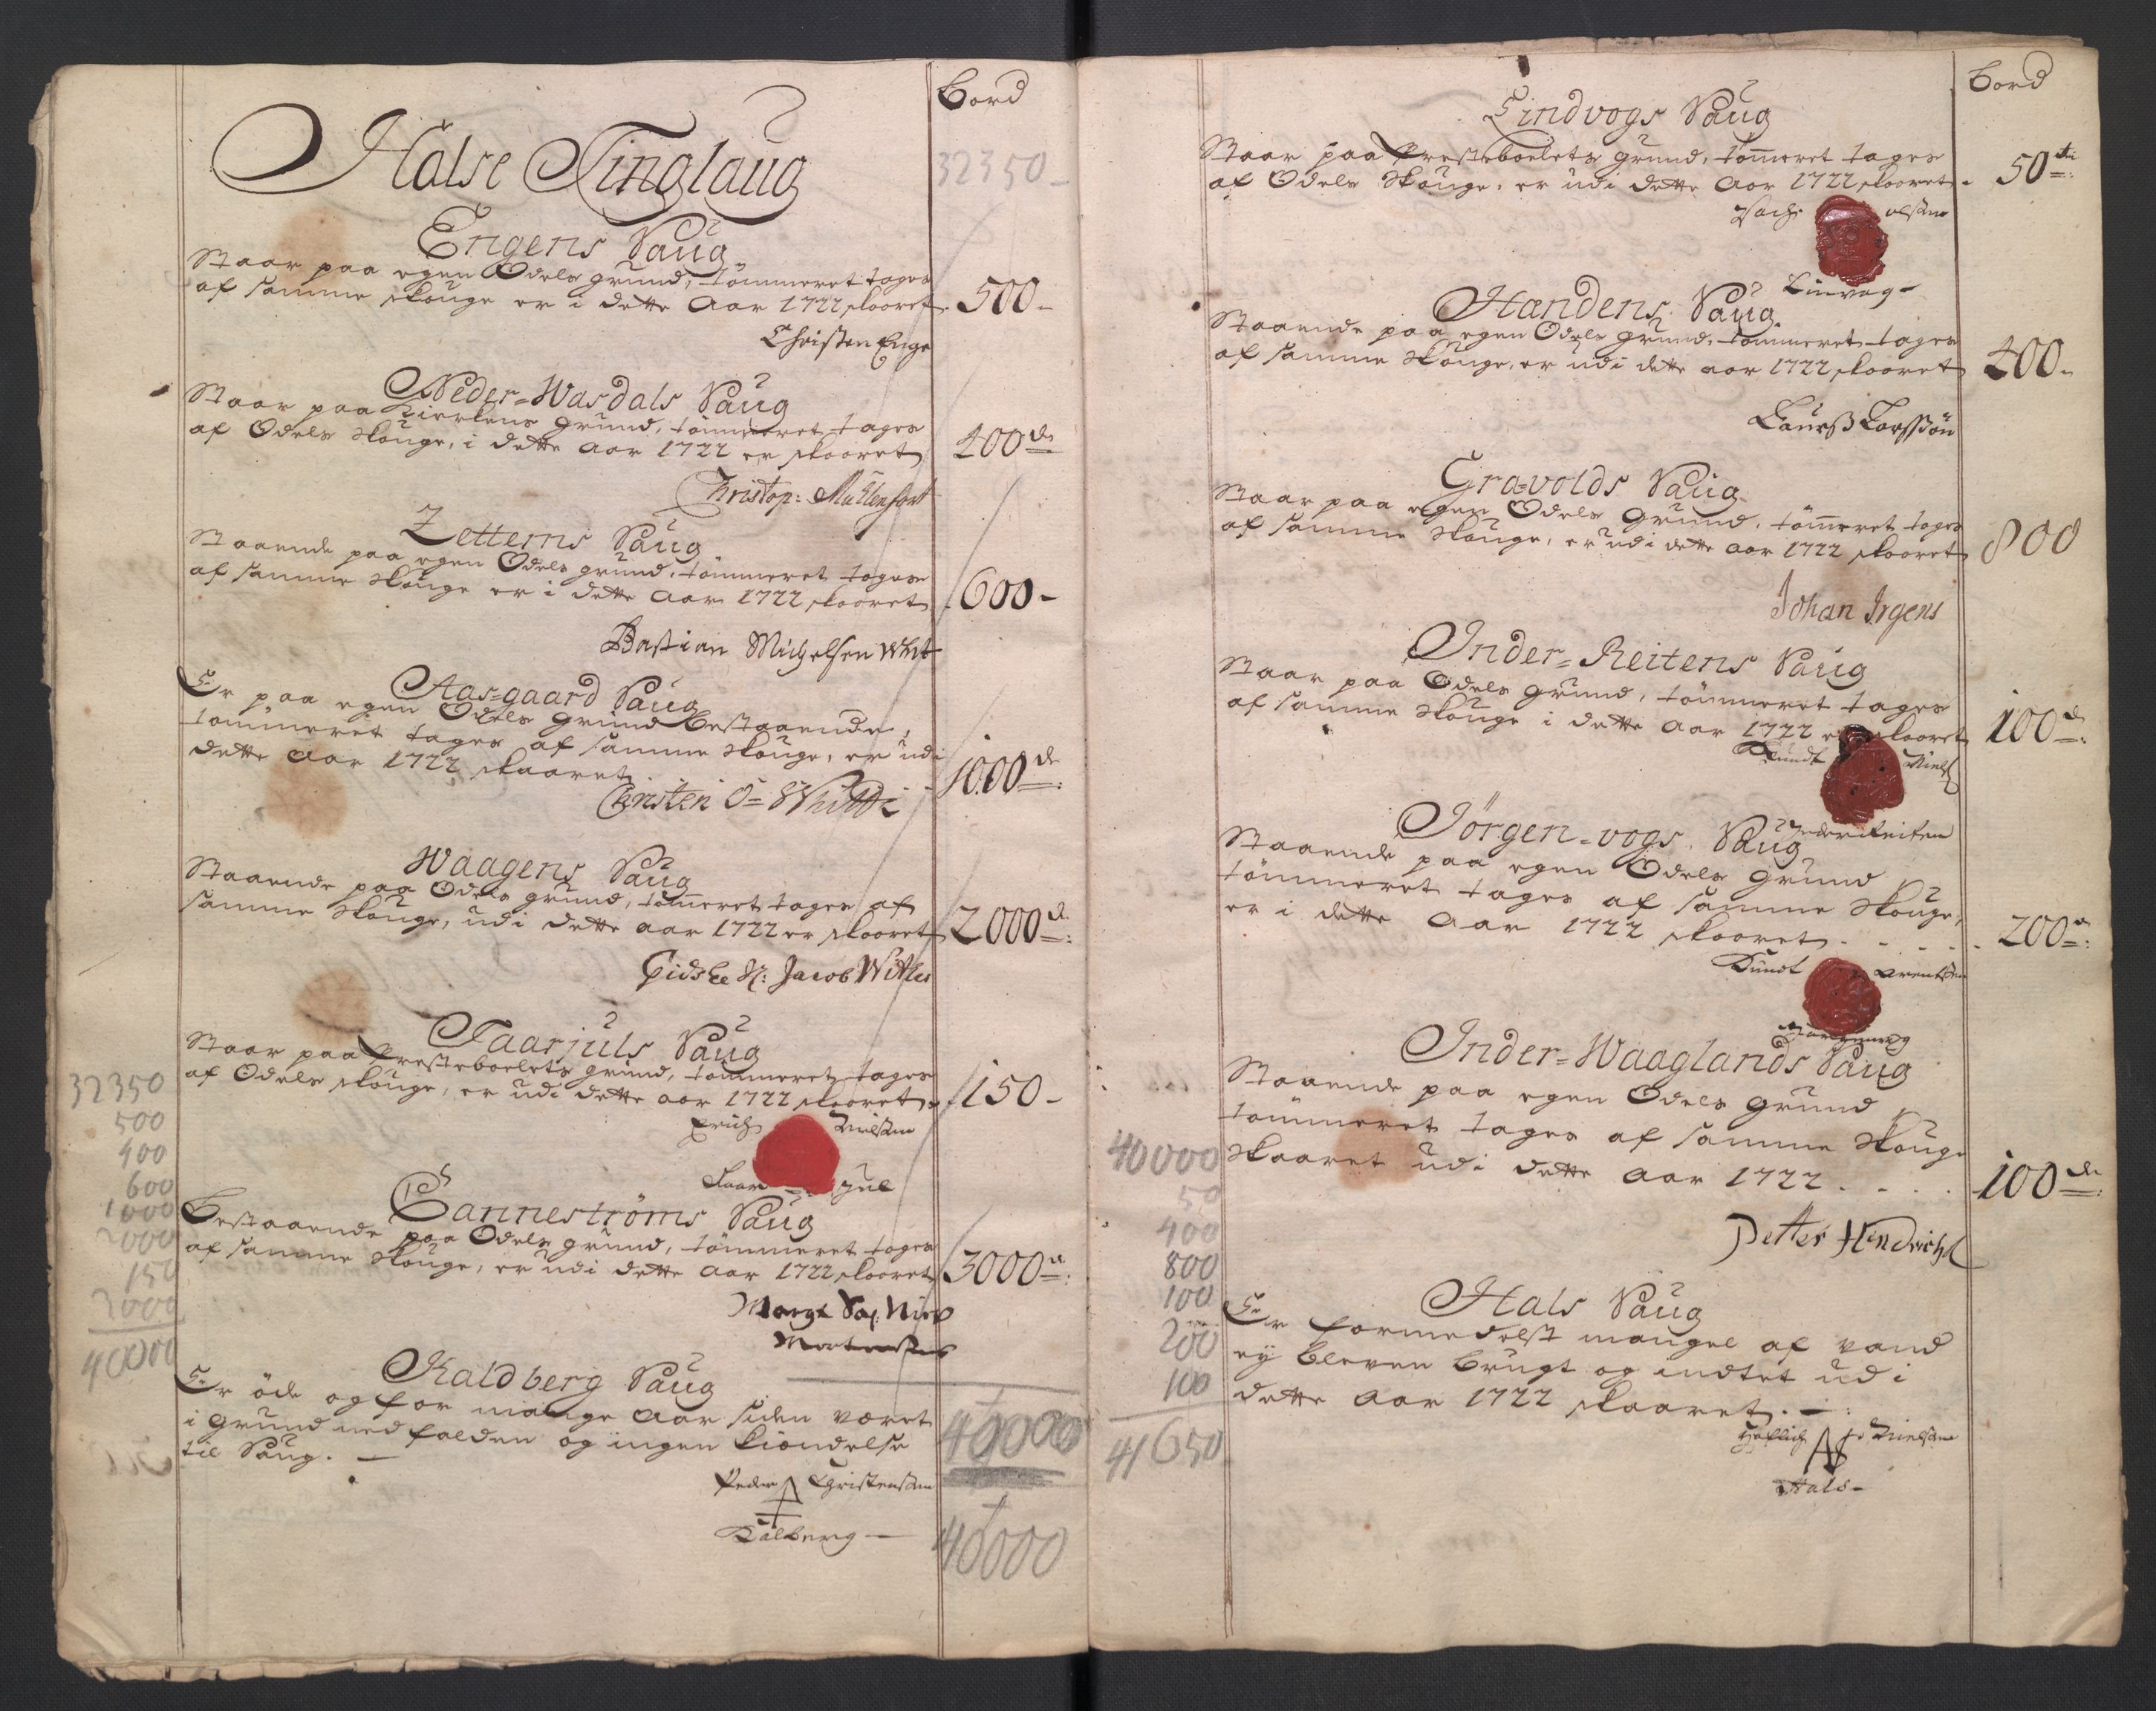 Bord
Halse Tinglaug
32350
Engens Saug
Staar paa egen Odels grund, tømmeret tages
af samme skouge er i dette Aar 1722 skaaret - 500 -
Christen Enge
Neder-Wasdals Saug
Staar paa Kierkens grund, tømmeret tages
af Odels skouge, i dette Aar 1722 er skaaret 400 de
Christop: Müllenfort
Zetterns Saug
Staaende paa egen Odels grund, tømmeret tages
af samme skouge er i dette Aar 1722 skaaret 600 -
Bastian Michelsen
Aas-gaard Saug
Er paa egen Odels grund bestaaende,
tømmeret tages af samme skouge, er udi
dette Aar 1722 skaaret - 1000 de
Christen
Waagens Saug
Staaende paa Odels grund, tømeret tages af
samme skouge, udi dette aar 1722 er skaaret 2000 de
Jacob
Taarjuls Saug
Staar paa Presteboelets grund, tømmeret tages
af Odels skouge, er udi dette aar 1722 skaaret - 150 -
Erich Nielsen
juel
Cannestrøms Saug
Bestaaende paa Odels grund, tømmeret tages
af samme skouge, er udi dette Aar 1722 skaaret 3000 de
Kaldberg Saug
Er øde og for mange Aar siden været
i grund nedfalden og ingen kiendelse
til Saug. -
Peder Christensen
Kalberg -
40000
40000
32350
500
400
600
1000
2000
150
3000
40000
Bord
Lindvogs Saug
Staar paa Presteboelets grund, tømeret tages
af Odels skouge, er udi dette Aar 1722 skaaret - 50 de
Zach: olsen
Linvog -
Handens Saug
Staaende paa egen Odels grund, tømmeret tages
af samme skouge, er udi dette aar 1722 skaaret 400 -
Laurs Larssøn
Gravolds Saug
Staar paa egen Odels grund, tømeret tages
af samme skouge, er udi dette aar 1722 skaaret 800
Johan Irgens
Inder-Reitens Saug
Staar paa Odels grund, tømmeret tages
af samme skouge i dette Aar 1722 er skaaret 100 de
Knudt Niels
Inderreiten
Jörgen-vogs Saug
Staaende paa egen Odels grund
tømmeret tages af samme skouge,
er i dette Aar 1722 skaaret - - - - 200 de
Knudt Arentsen
Inder-Waaglands Saug
Staaende paa egen Odels grund
tømmeret tages af samme skouge
skaaret udi dette Aar 1722 - - - 100 de
Petter Hendrichs
Hals Saug
Er formedelst mangel af vand
ey bleven brugt og indtet udi
dette Aar 1722 skaaret. -
Nielsen
Hals -
40000
50
400
800
100
200
100
41650